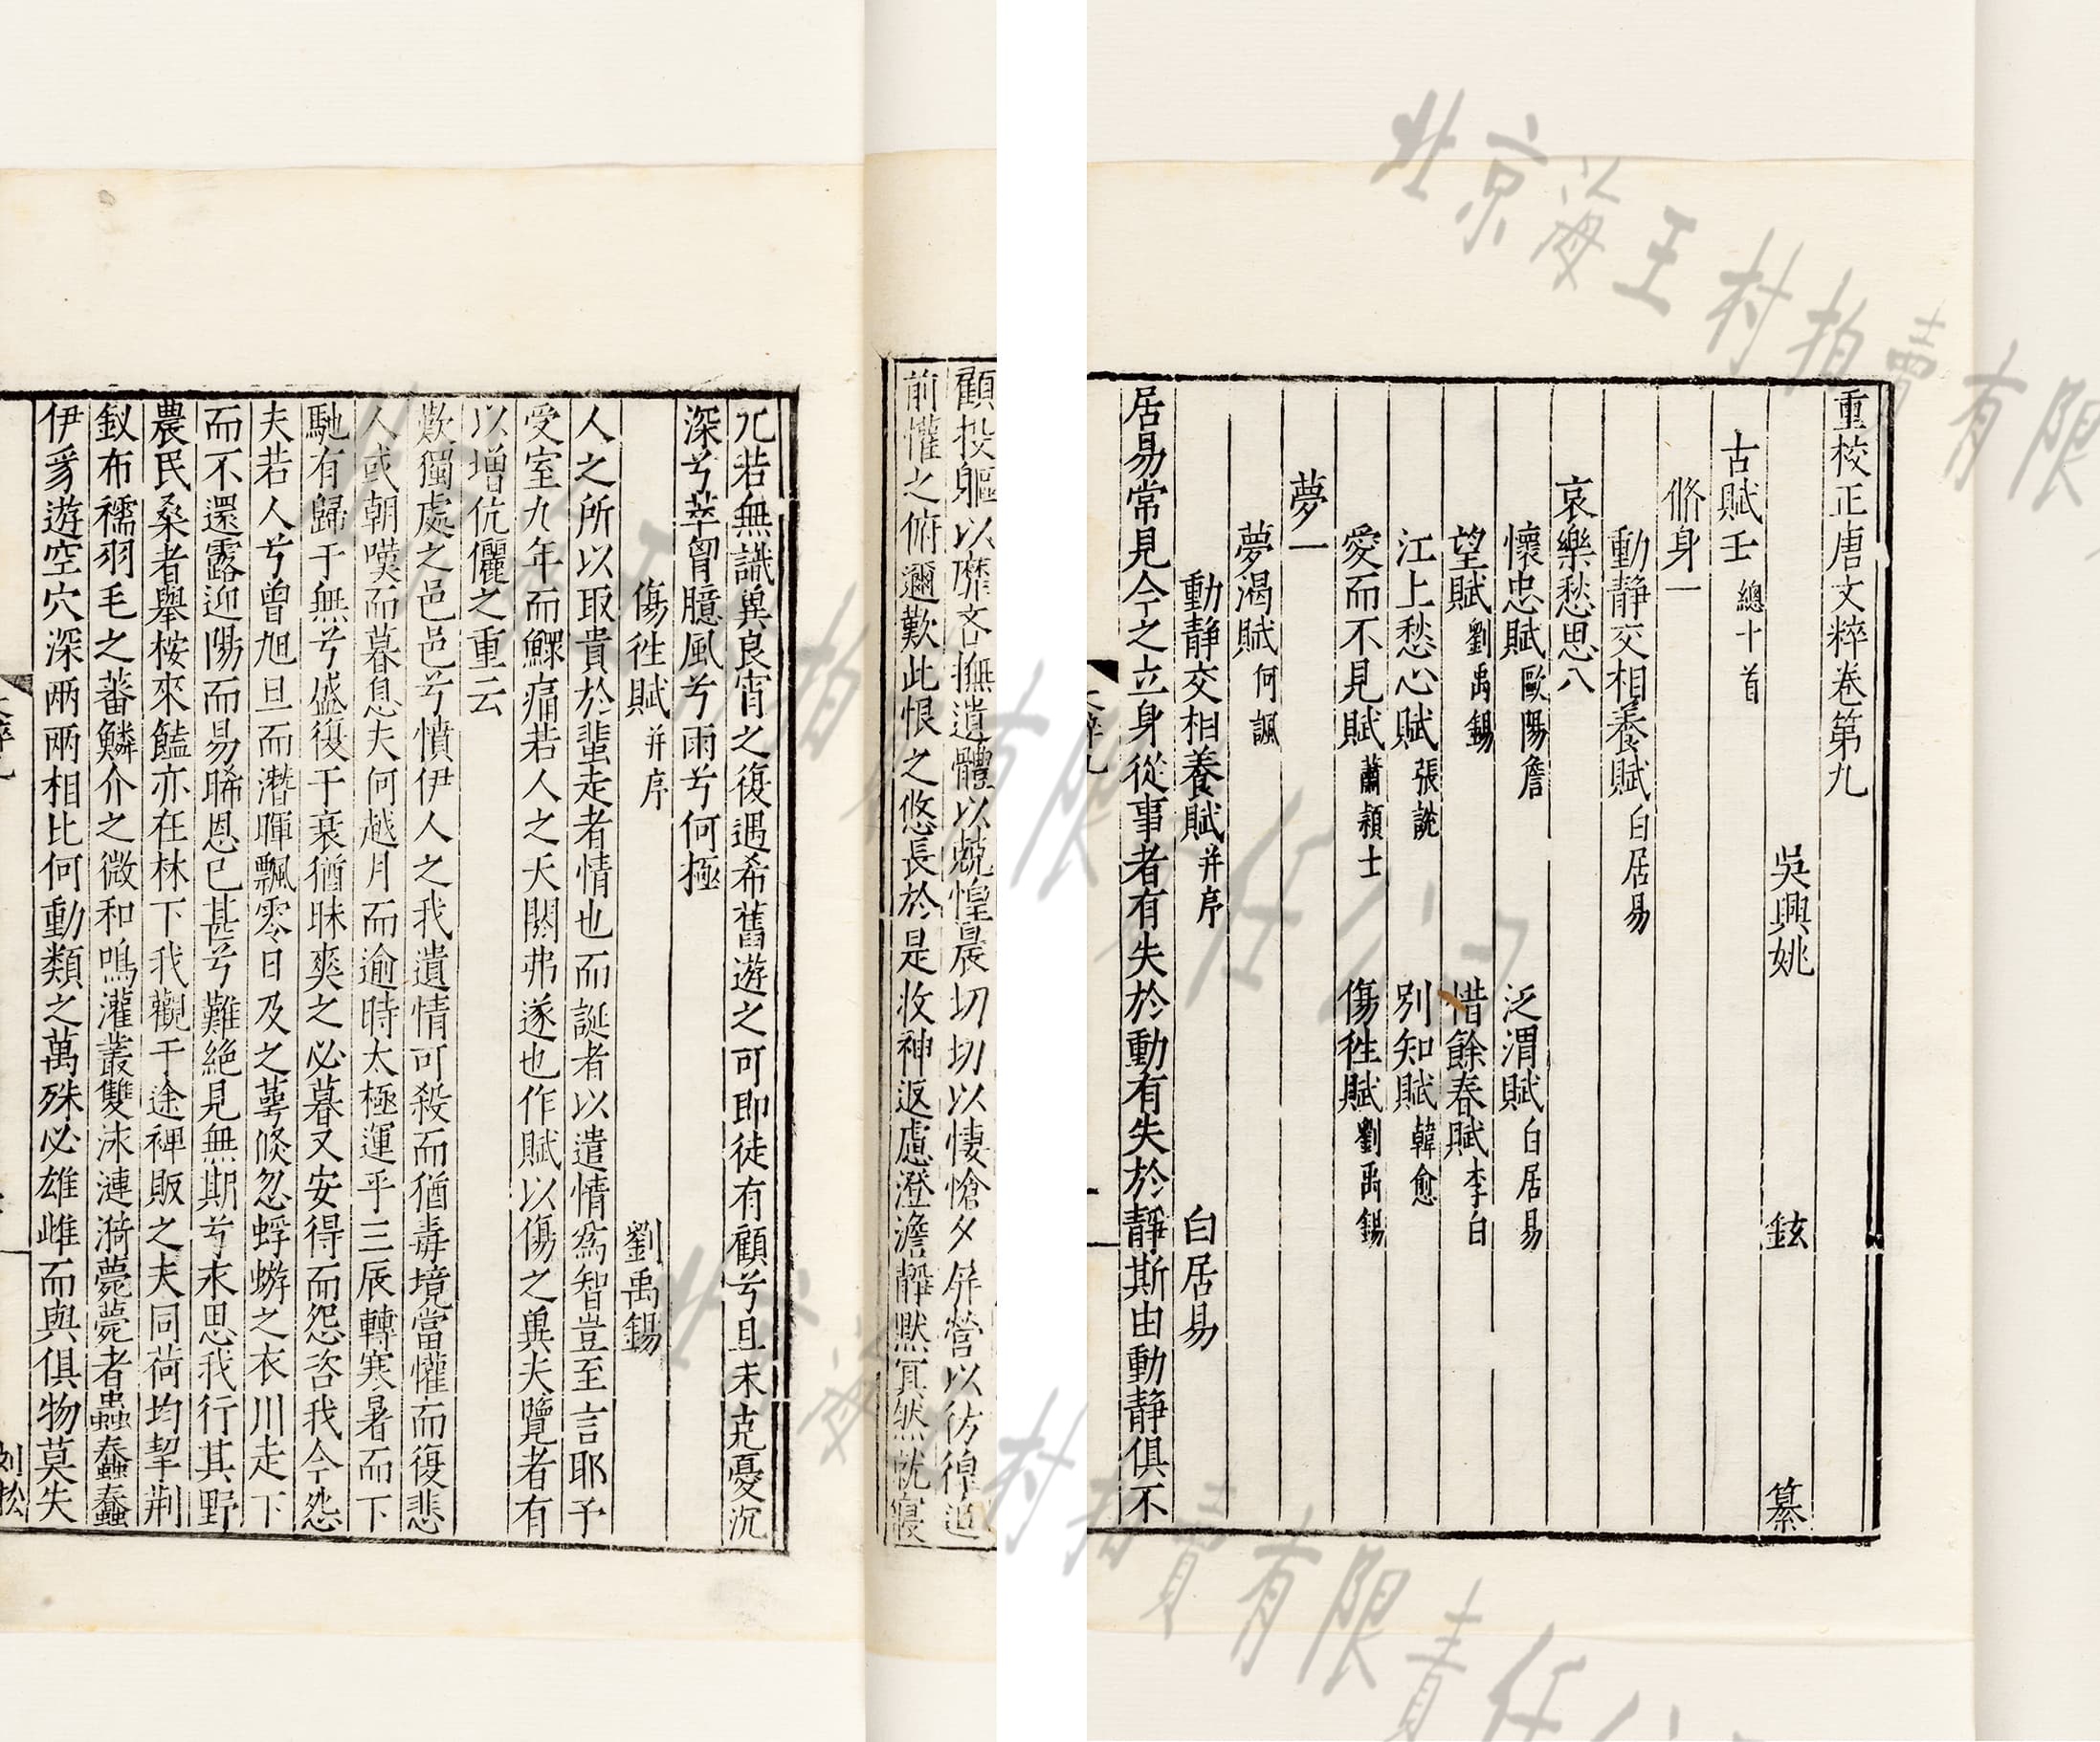 重校正唐文粹卷第九
吳興姚 鉉 纂
古賦壬 總十首
脩身一
動靜交相養賦 白居易
哀樂愁思八
懷忠賦 歐陽詹 泛渭賦 白居易
望賦 劉禹錫 惜餘春賦 李白
江上愁心賦 張說 別知賦 韓愈
愛而不見賦 蕭穎士 傷徃賦 劉禹錫
夢一
夢渴賦 何諷
動靜交相養賦 并序 白居易
居易常見今之立身從事者有失於動有失於靜斯由動靜俱不
顧投軀以靡吝撫遺體以兢惶晨切切以悽愴夕屏營以彷徨迫
前懽之俯邇歎此恨之悠長於是收神返慮澄澹靜默冥然就寢
兀若無識巢良宵之復遇希舊遊之可即徒有顧兮且未克憂沉
深兮萃胷臆風兮雨兮何極
傷徃賦 并序 劉禹錫
人之所以取貴於蜚走者情也而誕者以遣情爲智豈至言耶予
受室九年而鰥痛若人之夭閼弗遂也作賦以傷之兾夫覽者有
以增伉儷之重云
歎獨處之邑邑兮憤伊人之我遺情可殺而猶毒境當懽而復悲
人或朝嘆而暮息夫何越月而逾時太極運乎三辰轉寒暑而下
馳有歸于無兮盛復于衰猶昧爽之必暮又安得而怨咨我今怨
夫若人兮曾旭旦而潛暉飄零日及之萼倐忽蜉蝣之衣川走下
而不還露迎陽而易晞恩已甚兮難絕見無期兮永思我行其野
農民桑者舉桉來饁亦在林下我觀于途裨販之夫同荷均挈荆
釵布襦羽毛之蕃鱗介之微和鳴灌叢雙泳漣漪薨薨者蟲蠢蠢
伊豸遊空穴深兩兩相比何動類之萬殊必雄雌而與俱物莫失